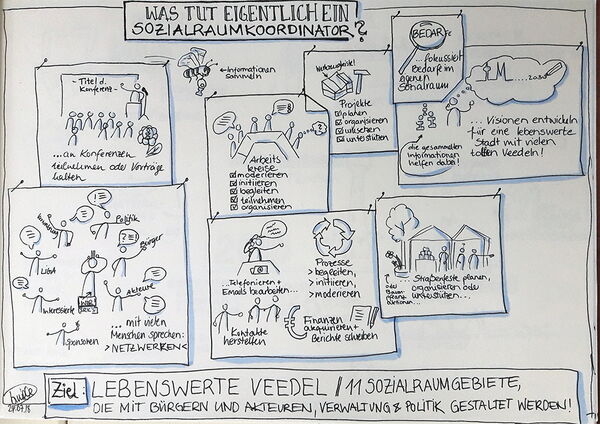 WAS TUT EIGENTLICH EIN
SOZIALRAUMKOORDINATOR?
- Titel d.
Konferenz -
... an Konferenzen
teilnehmen oder Vorträge
halten
Informationen
sammeln
Arbeits
kreise
moderieren
initiieren
begleiten
teilnehmen
organisieren
Werkzeugkiste
Projekte
planen
organisieren
umsetzen
unterstützen
BEDARFe
... fokussiert
Bedarfe im
eigenen
Sozialraum
die gesammelten
Informationen
helfen dabei!
... Visionen entwickeln
für eine lebenswerte
Stadt mit vielen
tollen Veedeln!
Politik
Bürger
Akteure
Interessierte
Sponsoren
... mit vielen
Menschen sprechen:
>NETZWERKEN<
...Telefonieren +
Emails bearbeiten...
Kontakte
herstellen
Prozesse
> begleiten,
> initiieren,
> moderieren
Finanzen
akquirieren +
Berichte schreiben
oder
Baum-
pflanz-
aktionen...
Straßenfeste planen,
organisieren oder
unterstützen...
Ziel:
LEBENSWERTE VEEDEL // 11 SOZIALRAUMGEBIETE,
DIE MIT BÜRGERN UND AKTEUREN, VERWALTUNG & POLITIK GESTALTET WERDEN!